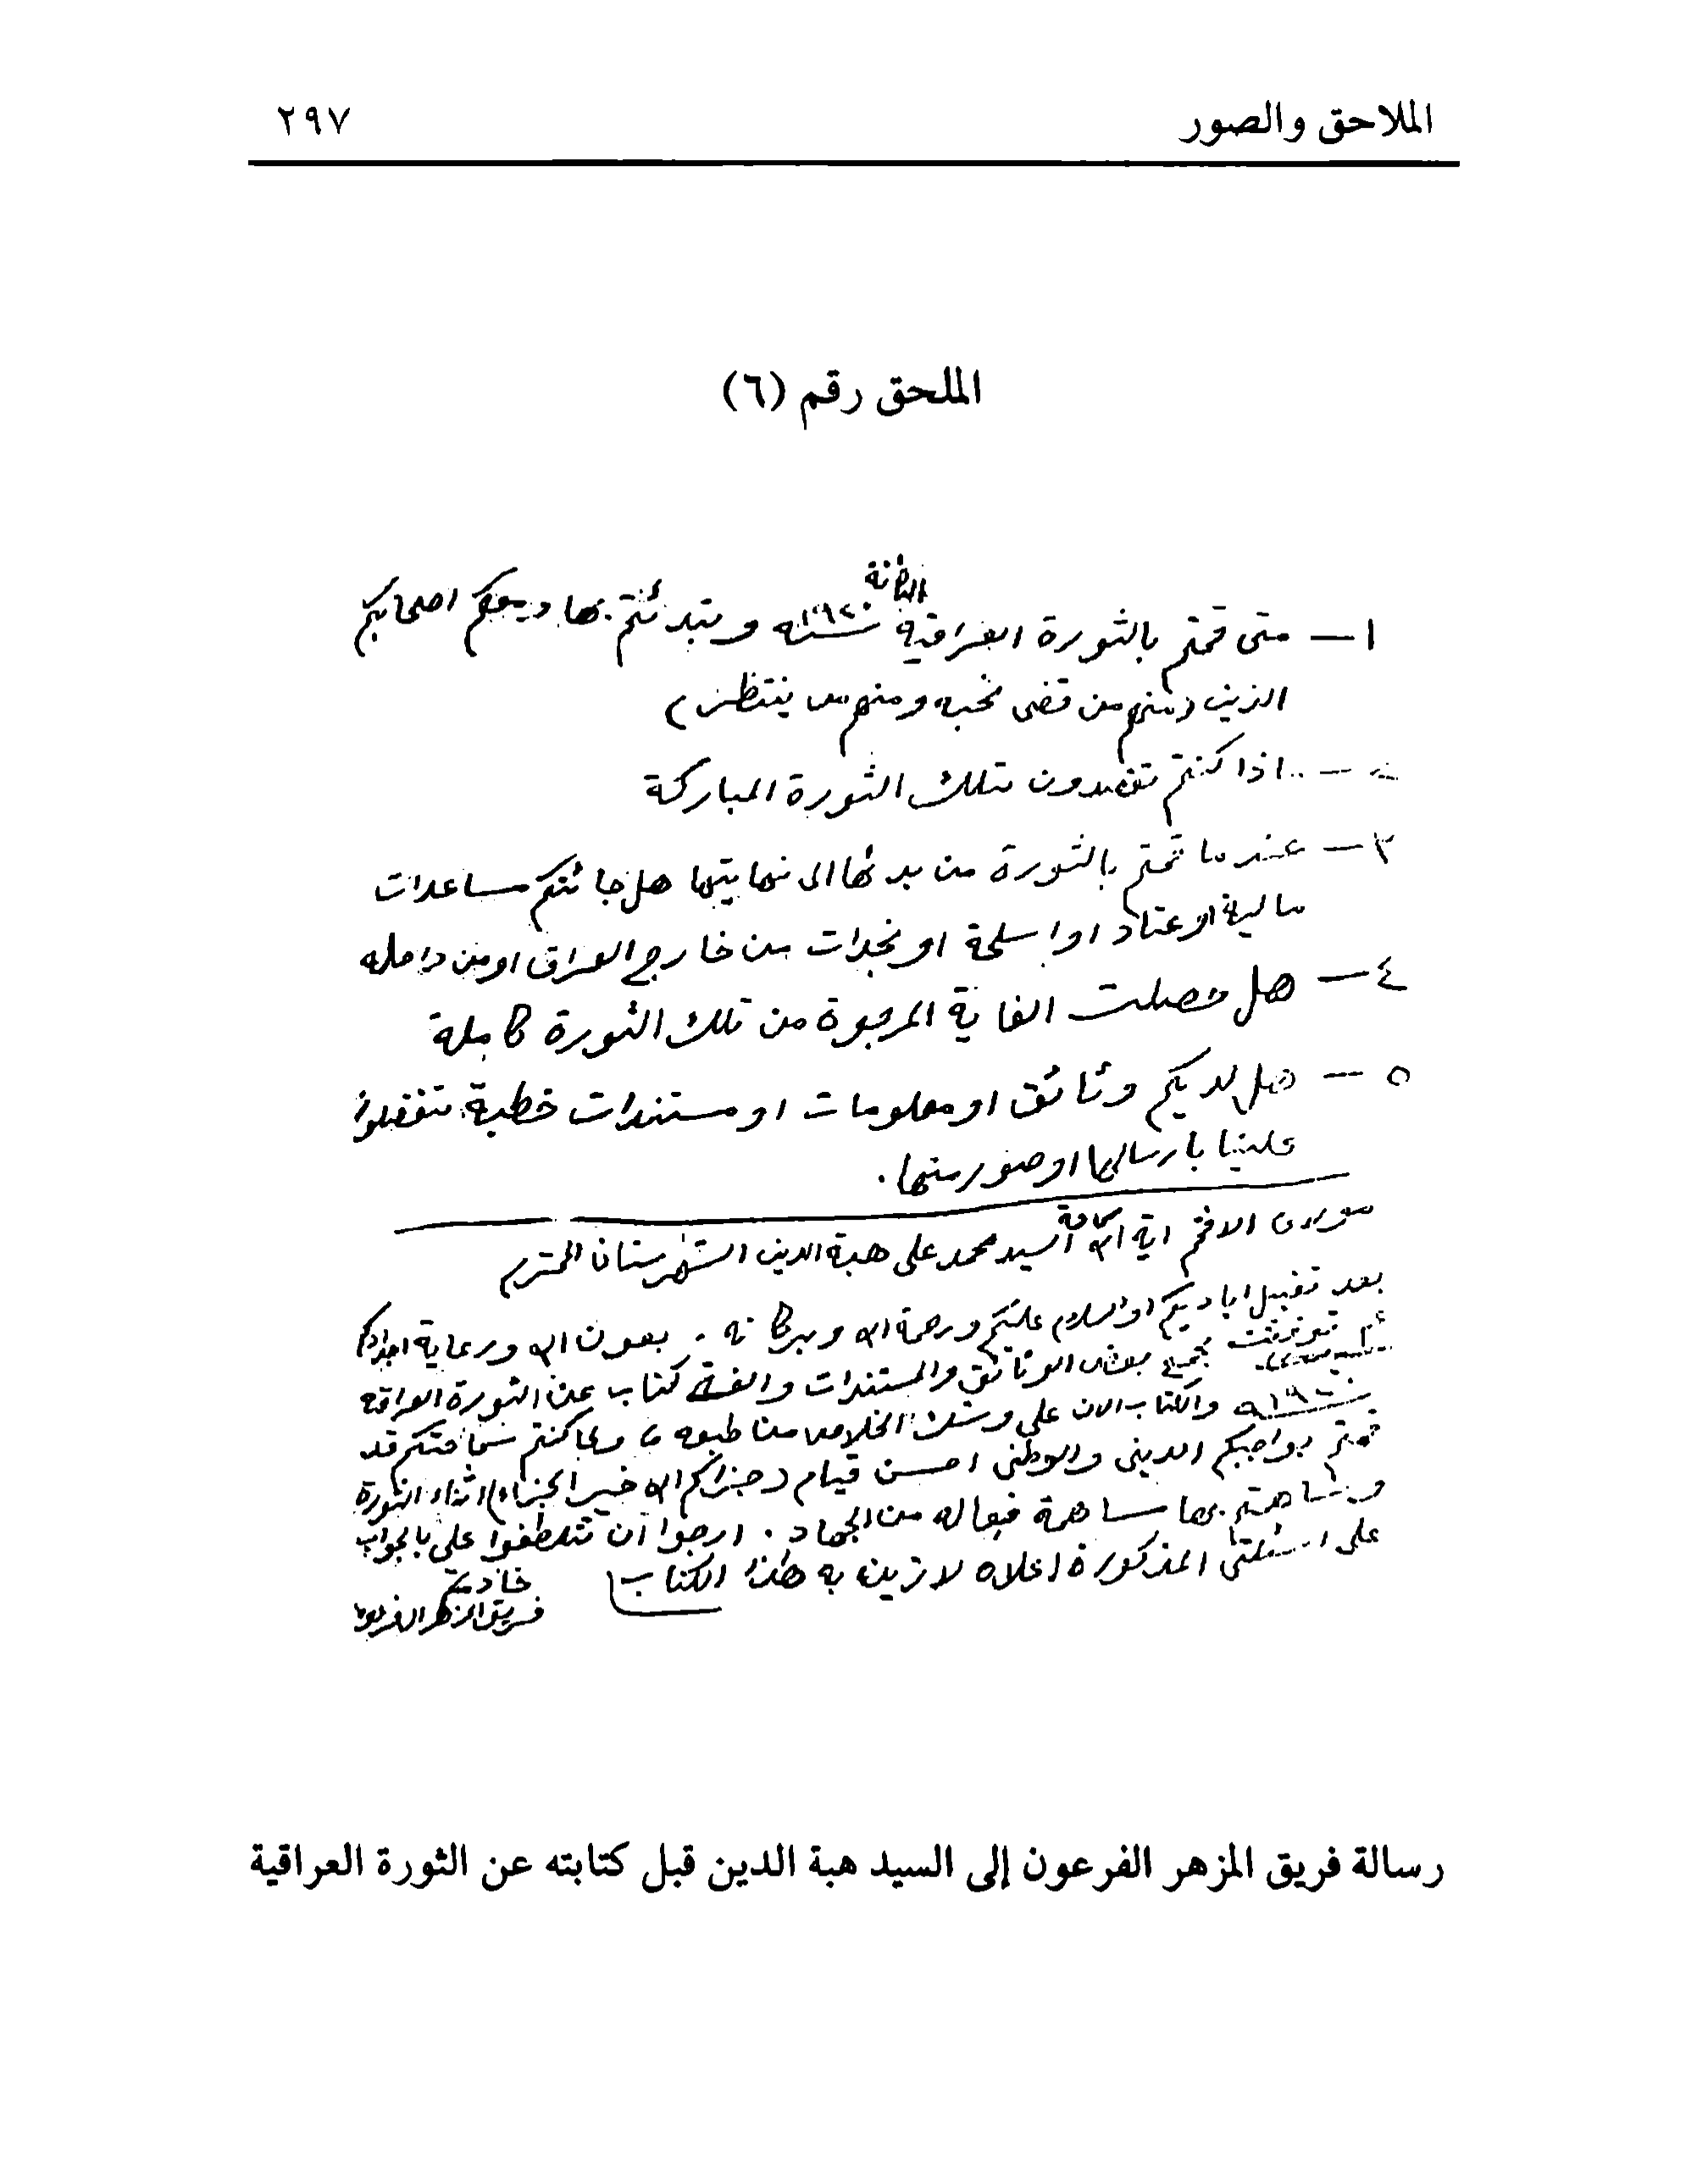 الملاحق والصور ٢٩٧
الملحق رقم (٦)
الثانية
١ — متى قمتم بالثورة العراقية سنه ١٩٢٠ و بمعكم اصحابكم
الذين (منهم من قضى نحبه ومنهم من ينتظر)
اذا كنتم تقصدون بتلك الثورة المباركة
٣ — عندما قمتم بالثورة من بدئها الى نهايتها هل جائتكم مساعدات
مالية او عتاد او اسلحة او نجدات من خارج العراق او من داخله
٤ — هل حصلت الغاية المرجوة من تلك الثورة كاملة
٥ — هل لديكم وثائق او معلومات او مستندات خطية تتفضلوا
علينا بارسالها او صور منها .
الافخم اية الله السيد محمد علي هبة الدين الشهرستاني المحترم
بعد تقبيل اياديكم والسلام عليكم ورحمة الله وبركاته . بعون الله ورعاية اجدادكم
بجمع بعض الوثائق والمستندات والفت كتاب عن الثورة العراقيه
والكتاب الان على وشك الخلاص من طبعه وبما كنتم سماحتكم قد
قمتم بواجبكم الديني والوطني احسن قيام (جزاكم الله خير الجزاء) اثناء الثورة
وساهمتم بها مساهمة فعاله من الجهاد . ارجوا ان تتلطفوا علي بالجواب
على اسئلتي المذكورة اعلاه لازين به هذا الكتاب
خادمكم
فريق المزهر الفرعون
رسالة فريق المزهر الفرعون إلى السيد هبة الدين قبل كتابته عن الثورة العراقية